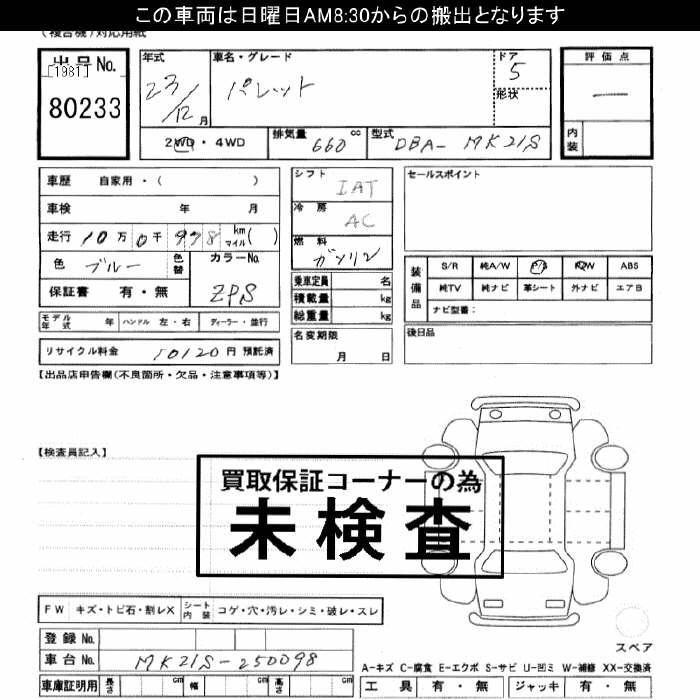 この車両は日曜日AM8:30からの搬出となります
(複合機)対応用紙
出品No.
[1981]
80233
年式
23/12月
車名・グレード
パレット
ドア
5
形状
評価点
—
内装
2WD・4WD
排気量
660 cc
型式
DBA- MK21S
車歴 自家用・( )
車検 年 月
走行 10万0千998 km マイル( )
色 ブルー 色替
カラーNo.
ZPS
保証書 有・無
モデル年式 年 ハンドル 左・右 ディーラー・並行
リサイクル料金 10120円 預託済
シフト IAT
冷房 AC
燃料 ガソリン
乗車定員 名
積載量 kg
総重量 kg
名変期限
月 日
セールスポイント
装備品
S/R 純A/W P/S P/W ABS
純TV 純ナビ 革シート 外ナビ エアB
ナビ型番:
後日品
【出品店申告欄(不良箇所・欠品・注意事項等)】
【検査員記入】
買取保証コーナーの為
未検査
FW キズ・トビ石・割レX シート内装 コゲ・穴・汚レ・シミ・破レ・スレ
登録No.
車台No. MK21S-250098
車庫証明用 長さ cm 幅 cm 高さ cm
スペア
A-キズ C-腐食 E-エクボ S-サビ U-凹ミ W-補修 XX-交換済
工具 有・無 ジャッキ 有・無